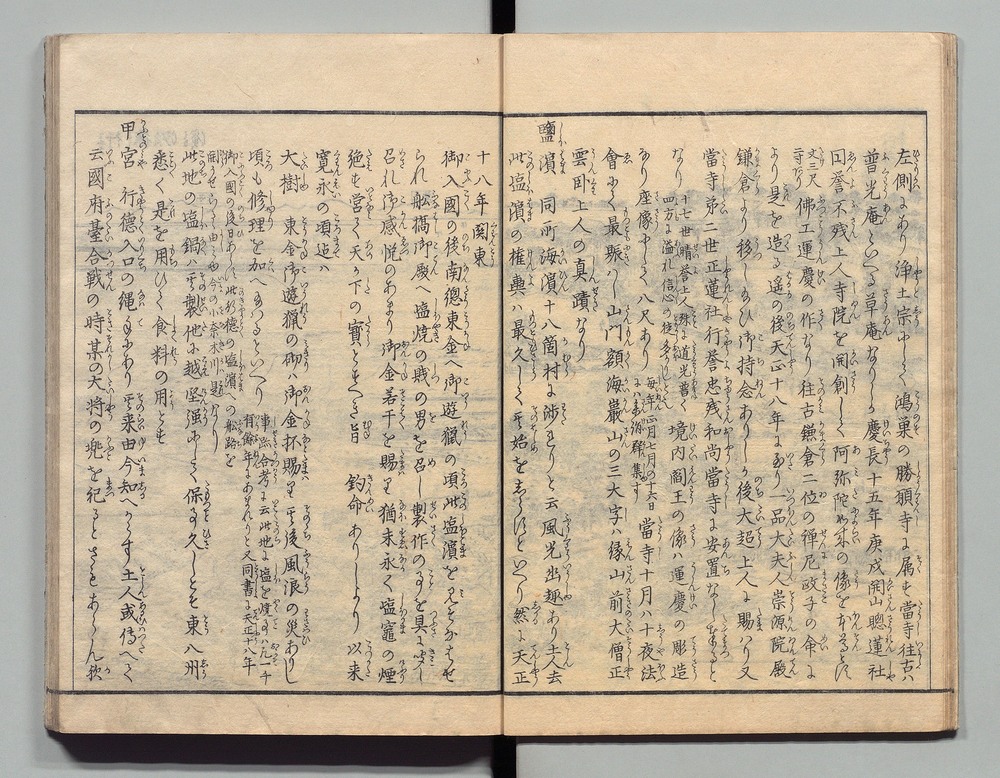 左側にあり浄土宗にして鴻巣の勝願寺に属す當寺往古ハ
普光庵といへる草庵なりしか慶長十五年庚戌開山聰蓮社
円誉不残上人寺院を開創して阿弥陀如来の像を本尊とす
丈三尺二寸佛工運慶の作なり往古鎌倉二位の禅尼政子の命によ
より是を造る遥の後天正十八年に至り一品大夫人崇源院殿
鎌倉より移しあひ御持念ありしか後大超上人に賜ハり又
當寺第二世正蓮社行誉忠残和尚當寺に安置なし奉ると
なり十七世晴誉上人殊に道光普く四方に溢れ信心の徒多し境内閻王の像ハ運慶の彫造
にて座像にして八尺あり毎年正月七月の十六日にハ参詣群集す當寺十月ハ十夜法
會にて最賑ハし山門額海巌山の三大字ハ縁山前大僧正
雲臥上人の真蹟なり
鹽濱 同所海濱十八箇村に渉れりと云風光幽趣あり土人去
此塩濱の権輿ハ最久しくて其始をしらすといへり然に天正
十八年関東
御入國の後南總東金へ御遊獵の頃此塩濱を見そなハせ
られ舩橋御殿へ塩焼の賤の男を召し製作の事を具に聞し
召れ御感悦のあまり御金若干を賜り猶末永く塩竈の煙
絶す営て天か下の寳とすへき旨 鈞命ありしより以来
寛永の頃迄ハ
大樹 東金御遊獵の砌ハ御金杯賜り其後風浪の災ありし
頃も修理を加へあひつるといへり事跡合考に云此地に塩を焼事ハ凡一千有餘年にあまれりと又同書に天正十八年
御入國の後日あらす此行徳の塩濱への舩路を開かせらるゝ由みゆ今の小奈木川是なり
此地の塩鍋ハ其製他に越堅強にして保つ事久しとそ東八州
悉く是を用ひて食料の用とす
甲宮 行徳入口の縄手にあり其来由今知へからす土人或傳へて
云國府臺合戦の時某の大将の兜を祀るとさもあらん歟